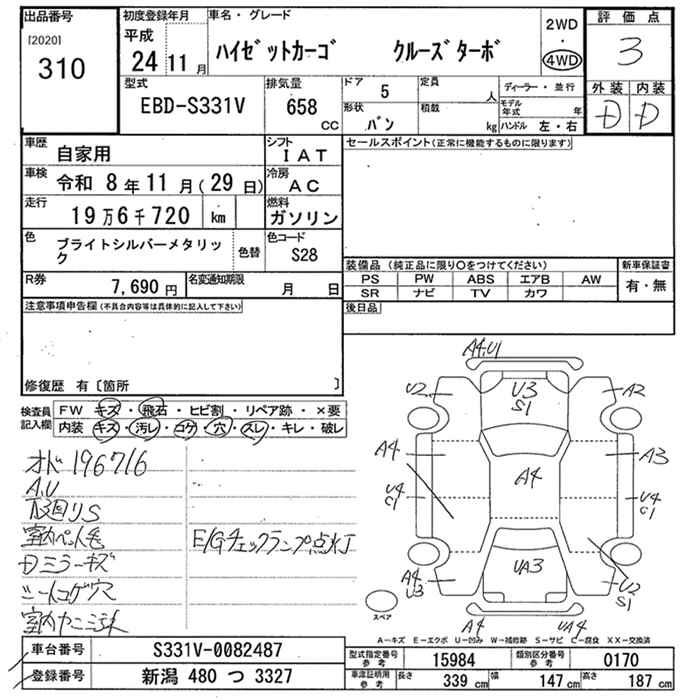 出品番号
[2020]
310
初度登録年月
平成
24 11 月
車名・グレード
ハイゼットカーゴ クルーズターボ
2WD
・
4WD
評価点
3
外装 内装
D D
型式
EBD-S331V
排気量
658 CC
ドア 5
定員 人
形状 バン
積載 kg
ディーラー・並行
モデル年式 年
ハンドル 左・右
車歴
自家用
シフト
IAT
車検
令和 8年 11月(29日)
冷房
AC
走行
19万6千720 km
燃料
ガソリン
色
ブライトシルバーメタリック
色替
色コード
S28
R券
7,690円
名変通知期限
月 日
セールスポイント(正常に機能するものに限ります)
装備品(純正品に限り○をつけてください)
PS PW ABS エアB AW
SR ナビ TV カワ
新車保証書
有・無
後日品
注意事項申告欄(不具合内容等は具体的に記入して下さい)
修復歴 有〔箇所 〕
検査員記入欄
FW キズ・飛石・ヒビ割・リペア跡・×要
内装 キズ・汚レ・コゲ・穴・スレ・キレ・破レ
オド196716
A,U
下回りS
室内ペット毛
Dミラーキズ
シートコゲ穴
E/Gチェックランプ点灯
A4,U1
U2
U3
S1
A2
A4
A4
A3
U4
C1
U4
C1
UA3
A4
U3
U2
S1
A4
UA4
スペア
A―キズ E―エクボ U―凹み W―補修跡 S―サビ C―腐食 XX―交換済
車台番号
S331V-0082487
登録番号
新潟 480 つ 3327
型式指定番号 参考
15984
類別区分番号 参考
0170
車庫証明用 参考
長さ 339 cm
幅 147 cm
高さ 187 cm